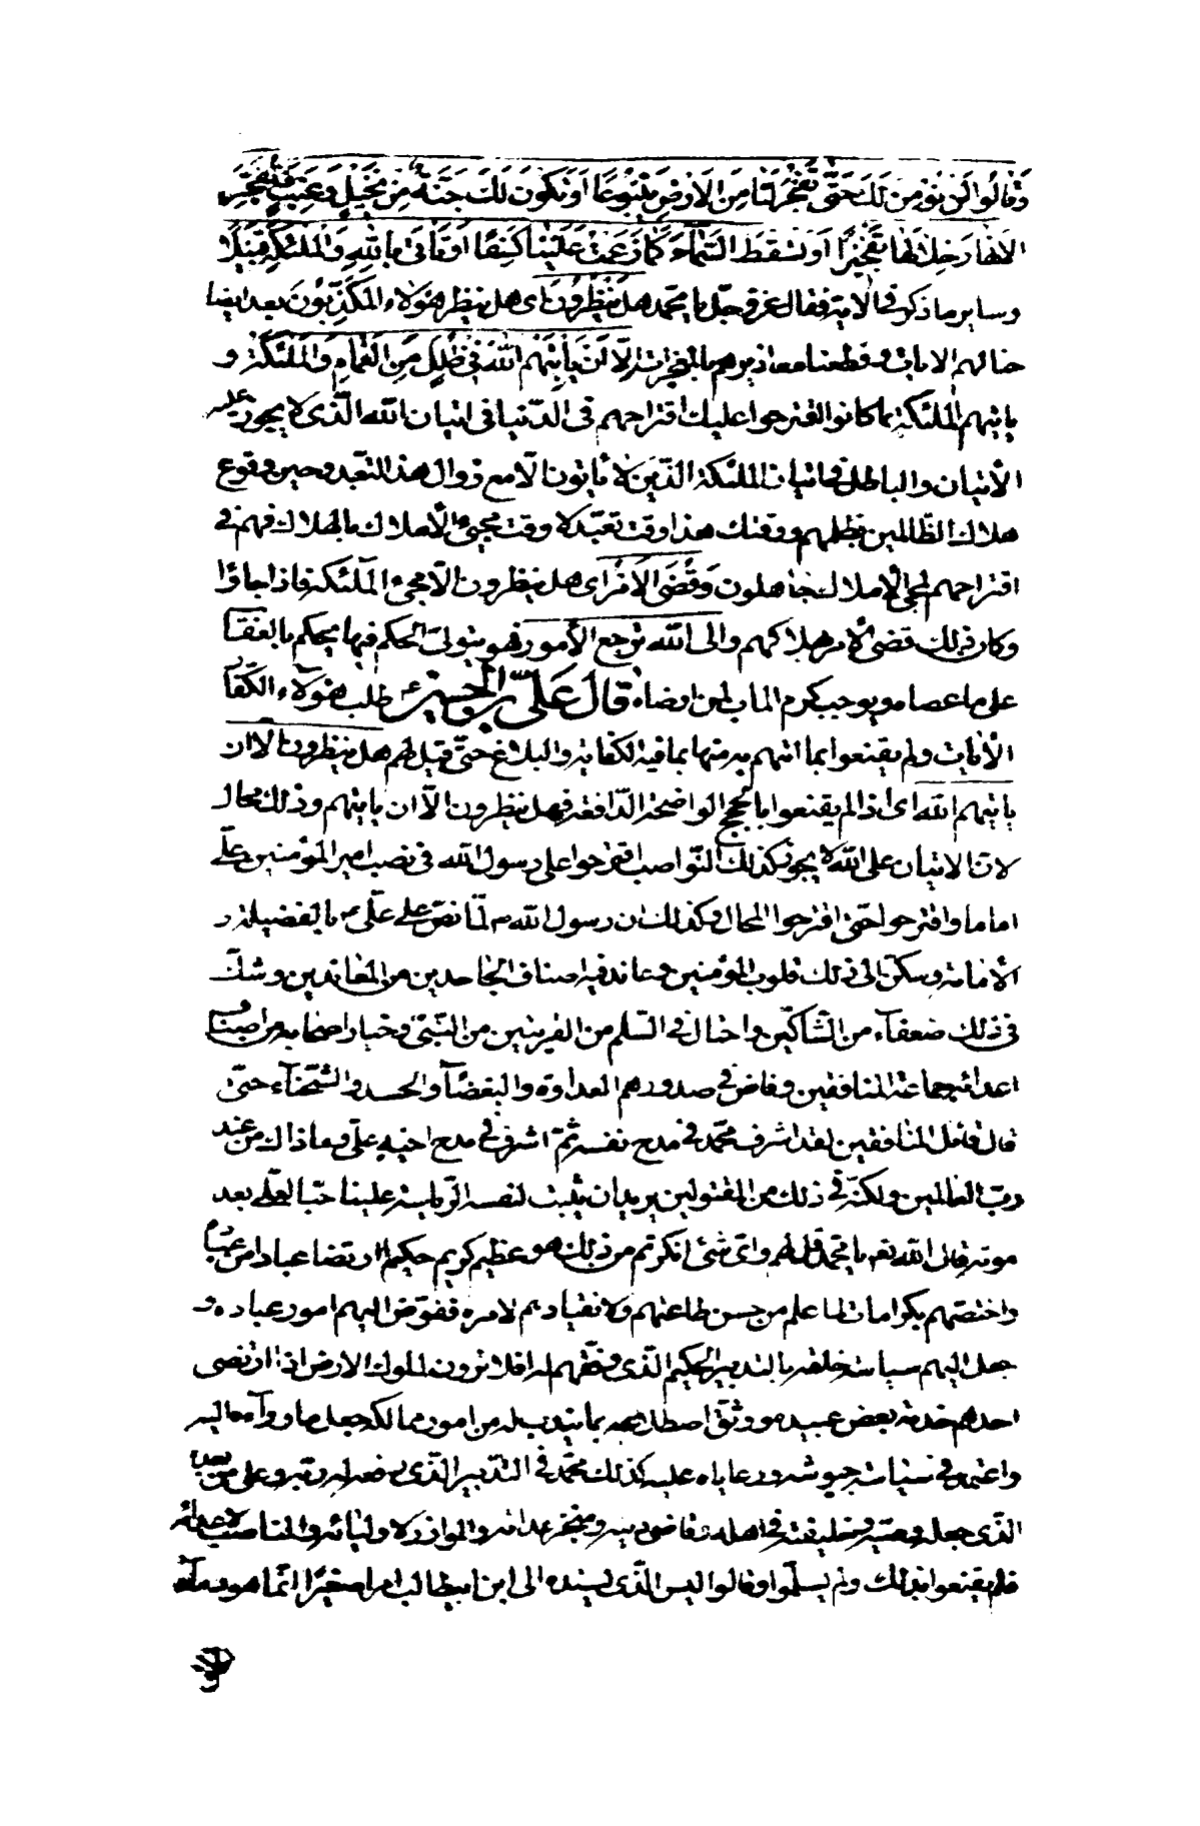 وَقَالُوا لَنْ نُؤْمِنَ لَكَ حَتَّى تَفْجُرَ لَنَا مِنَ الْاَرْضِ يَنْبُوعًا اَوْ تَكُونَ لَكَ جَنَّةٌ مِنْ نَخِيلٍ وَعِنَبٍ فَتُفَجِّرَ
الانهارَ خِلالَها تَفْجِيرًا اَوْ تُسْقِطَ السَّمَاءَ كَمَا زَعَمْتَ عَلَيْنَا كِسَفًا اَوْ تَاتِىَ بِاللهِ وَالْمَلئِكَةِ قَبِيلًا
وساير ما ذكر فى الاية فقال عز وجل يا محمد هَلْ يَنْظُرُونَ اى هل ينظر هؤلاء المكذبون بعد ايضا
حنا لهم الايات وقطعنا معاذيرهم بالمعجزات اِلَّا اَنْ يَاْتِيَهُمُ اللهُ فِى ظُلَلٍ مِنَ الْغَمَامِ وَالْمَلئِكَةُ و
ياتيهم الملئكة كما كانوا اقترحوا عليك اقتراحهم فى الدّنيا فى اتيان الله الّذى لا يجوز عليه
الأتيان والباطل فى اتيان الملئكة الّذين لا ياتون الّا مع زوال هذا التعبد وحين وقوع
هلاك الظّالمين بظلمهم ووقتك هذا وقت تعبّد لا وقت مجىء الأملاك بالهلاك فهم فى
اقتراحهم لمجئ الأملاك جاهلون وَقُضِىَ الْاَمْرُ اى هل ينظرون الّا مجىء الملئكة فاذا جاؤا
وكان ذلك قضى الأمر بهلاكهم والى الله ترجع الأمور فهو يتولى الحكم فيها يحكم بالعقاب
على من عصاه ويوجب كرم الماب لمن ارضاه قال عَلىّ بن الحسين ع طلب هؤلاء الكفّار
الأيات ولم يقنعوا بما اتيهم به منها بما فيه الكفاية والبلاغ حتّى قيل لهم هل ينظرون الا ان
ياتيهم الله اى اذا لم يقنعوا بالحجج الواضحة الدّافعة فهل ينظرون الّا ان ياتيهم وذلك محال
لان الاتيان على الله لا يجوز كذلك النّواصب اقترحوا على رسول الله فى نصب امير المؤمنين على
اماما واقترحوا حتى اقترحوا المحال وكذلك ان رسول الله ص لمّا نصّ على علّى ع بالفضيلة و
الأمامة وسكن الى ذلك قلوب المؤمنين وعاند فيه اصناف الجاحدين من المعاندين وشكّ
فى ذلك ضعفاء من الشّاكّين واحتال فى السّلم من الفريقين من النّبى وخيار اصحابه من اصناف
اعدائه جماعة المنافقين وفاض فى صدورهم العداوة والبغضاء والحسد والشّحناء حتى
قال قائل المنافقين لقد اسرف محمّد فى مدح نفسه ثم اسرف فى مدح اخيه علّى وما ذاك من عند
ربّ العالمين ولكنّه فى ذلك من المتقولين يريد ان يثبت لنفسه الرّياسة علينا حيّا ولعلّى بعد
موته قال الله تعه يا محمد قل لهم واى شئ انكرتم من ذلك هو عظيم كريم حكيم ارتضا عبادا من عباده
واختصّهم بكرامات لما علم من حسن طاعتهم ولانقيادهم لامره ففوّض اليهم امور عباده و
جعل اليهم سياسة خلقه بالتدبير الحكيم الّذى وفّقهم له افلا ترون لملوك الارض اذا ارتضى
احدهم خدمة بعض عبيده ووثق اصطلاعه بما يندبه له من امور ممالكه جعل ما وراء بابه اليه
واعتمد فى سياسة جيوشه ورعاياه عليه كذلك محمّد فى التّدبير الّذى رفعه له ربه وعلى من بعده
الذى جعله وصيه وخليفته فى اهله وقاضى دينه ومنجز عداته والموازر لاوليائه والمناصب لاعدائه
فلم يقنعوا بذلك ولم يسلّموا وقالوا ليس الّذى يسنده الى ابن ابيطالب امرا صغيرًا انّما هو دماء